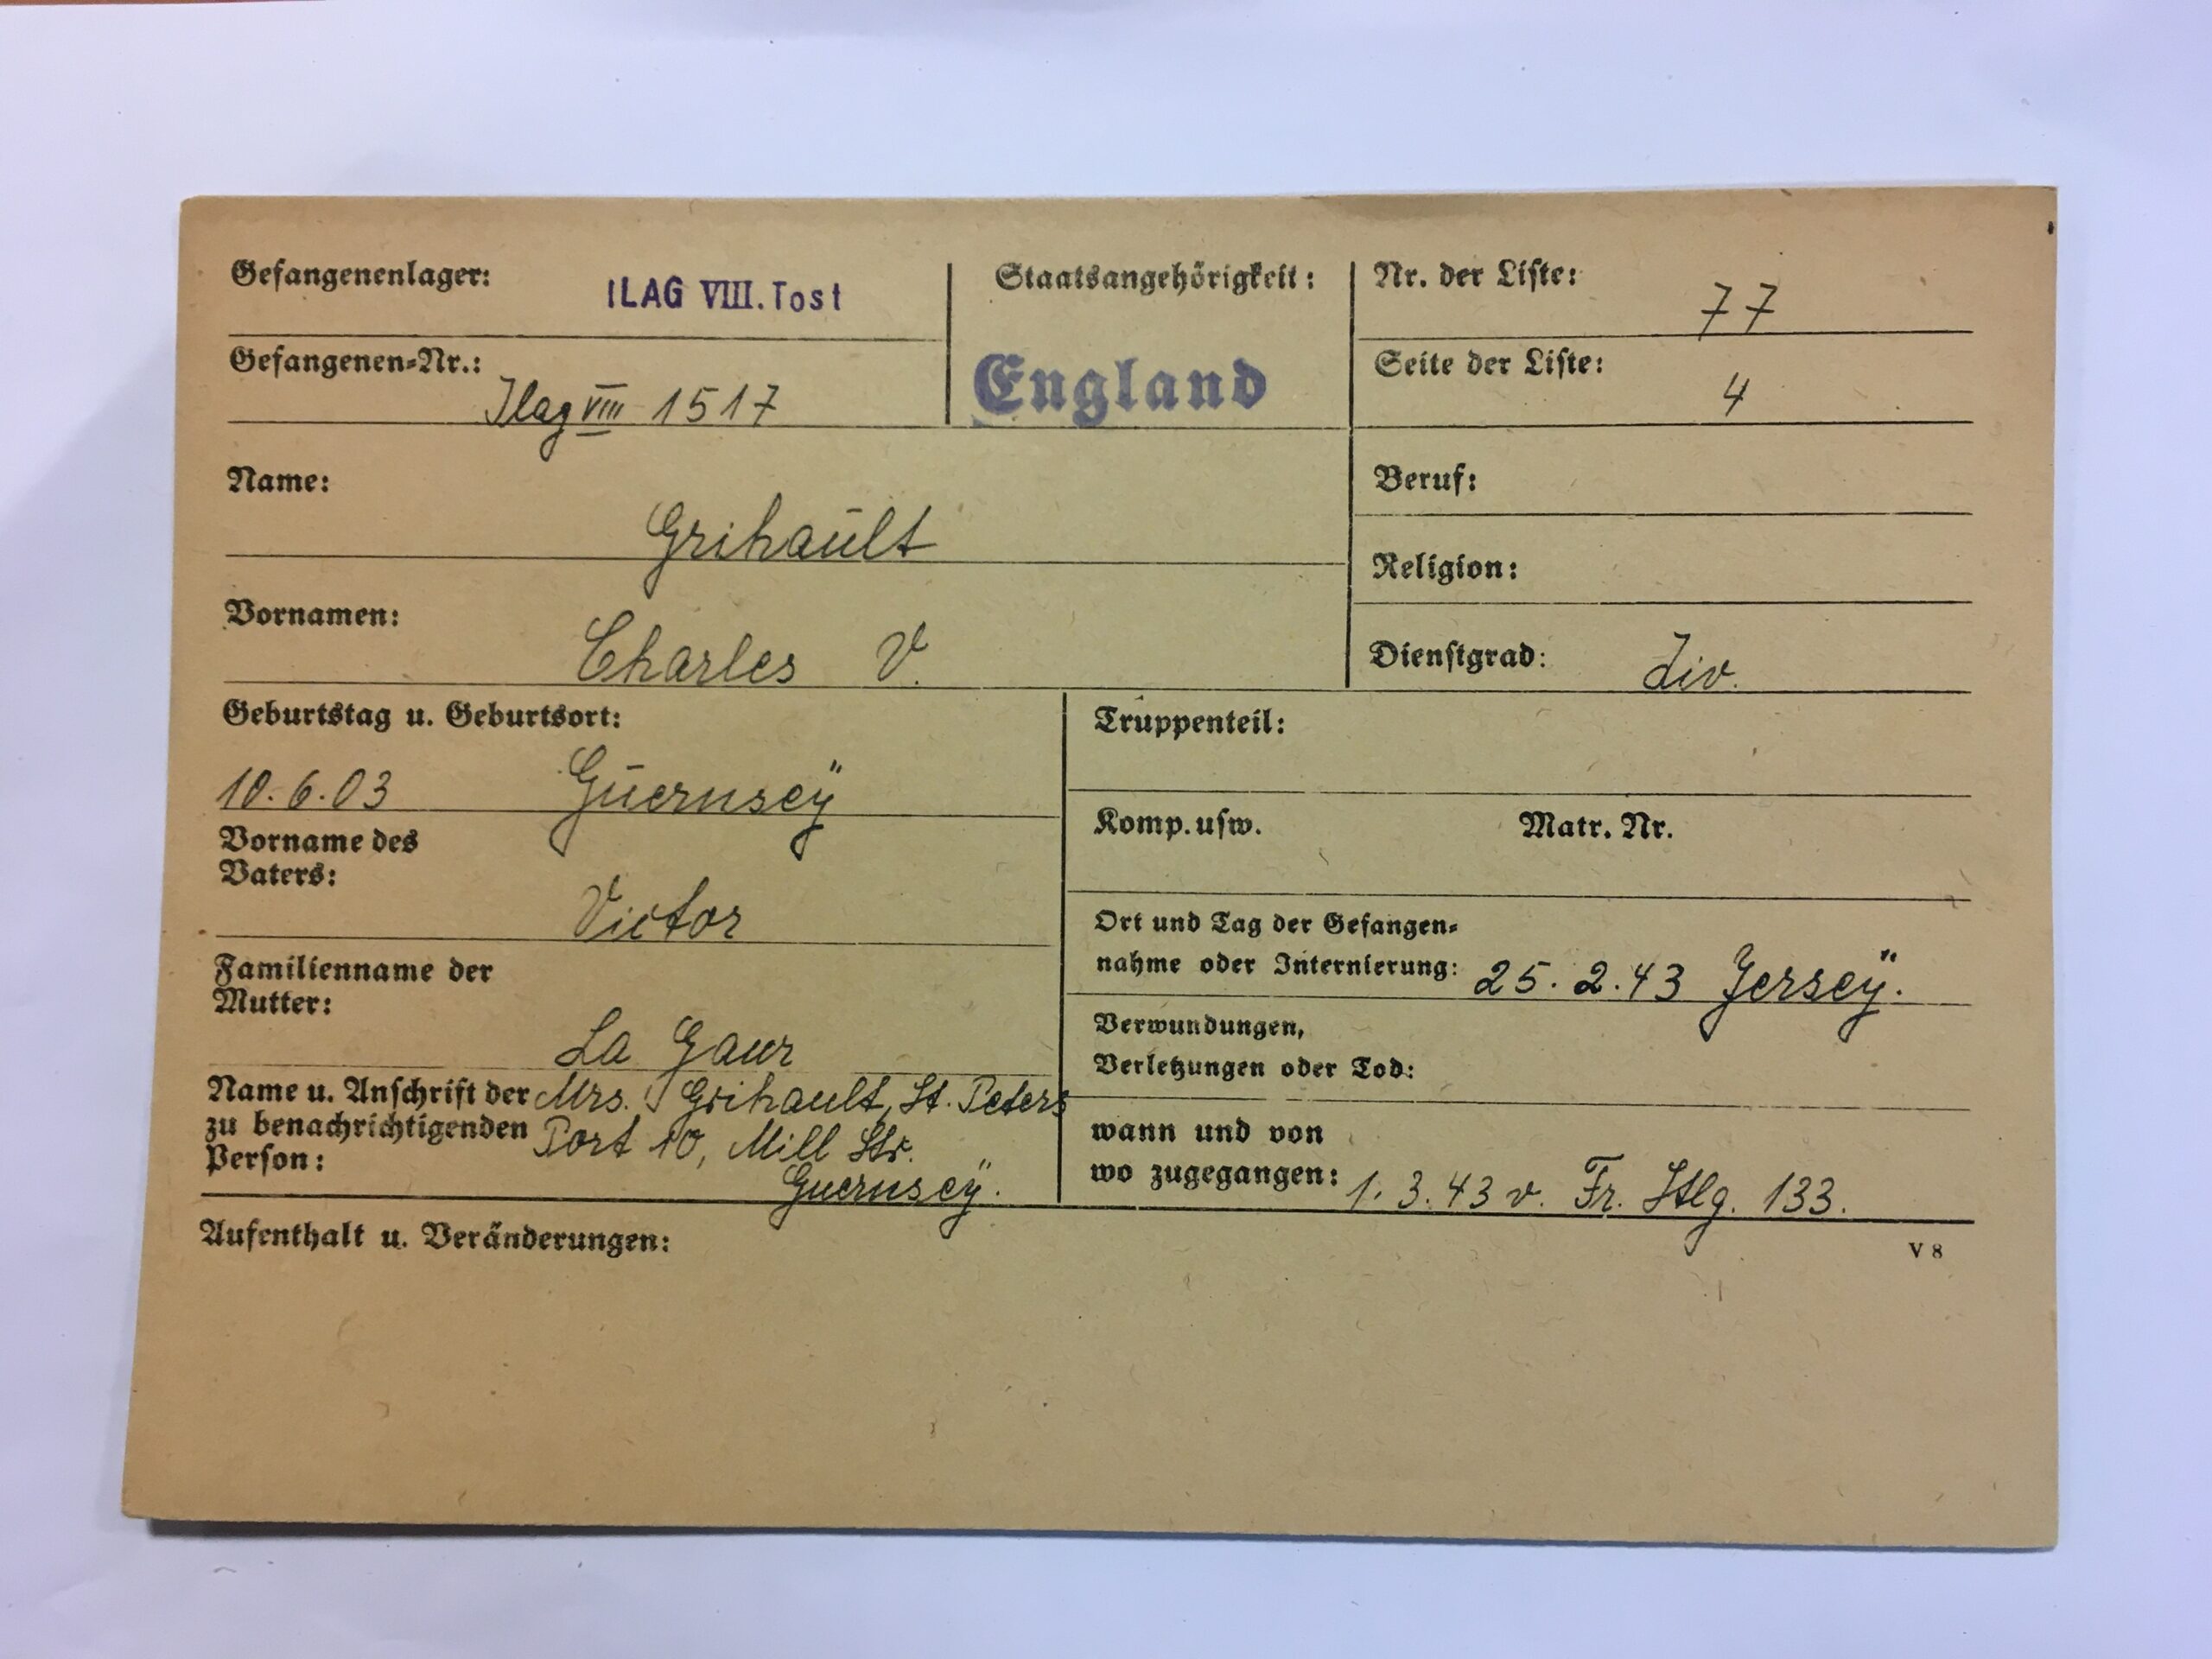 Gefangenenlager: ILAG VIII. Tost
Gefangenen-Nr.: Ilag VIII 1517
Staatsangehörigkeit:
England
Nr. der Liste: 77
Seite der Liste: 4
Name: Grihault
Vornamen: Charles V.
Beruf:
Religion:
Dienstgrad: Ziv.
Geburtstag u. Geburtsort:
10.6.03 Guernsey
Vorname des
Vaters: Victor
Familienname der
Mutter: La Gaur
Name u. Anschrift der Mrs. Grihault, St. Peters
zu benachrichtigenden Port 10, Mill Str.
Person: Guernsey.
Truppenteil:
Komp. usw. Matr. Nr.
Ort und Tag der Gefangen-
nahme oder Internierung: 25.2.43 Jersey.
Verwundungen,
Verletzungen oder Tod:
wann und von
wo zugegangen: 1.3.43 v. Fr. Stlg. 133.
Aufenthalt u. Veränderungen:
V 8